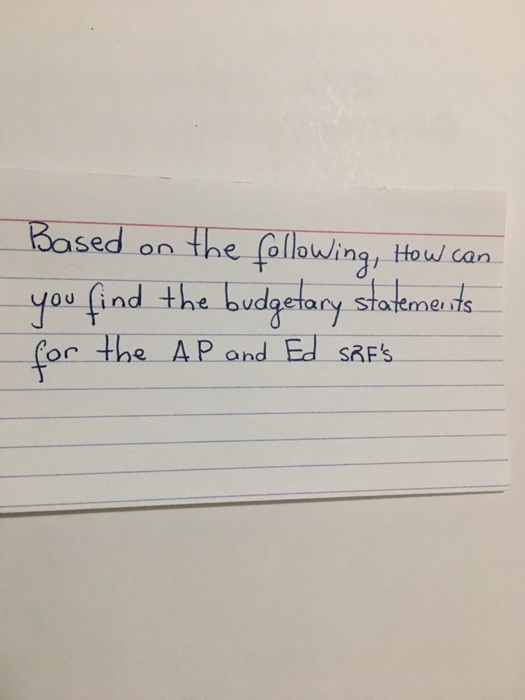 Based on the following, How can
you find the budgetary statements
for the AP and Ed SRF's